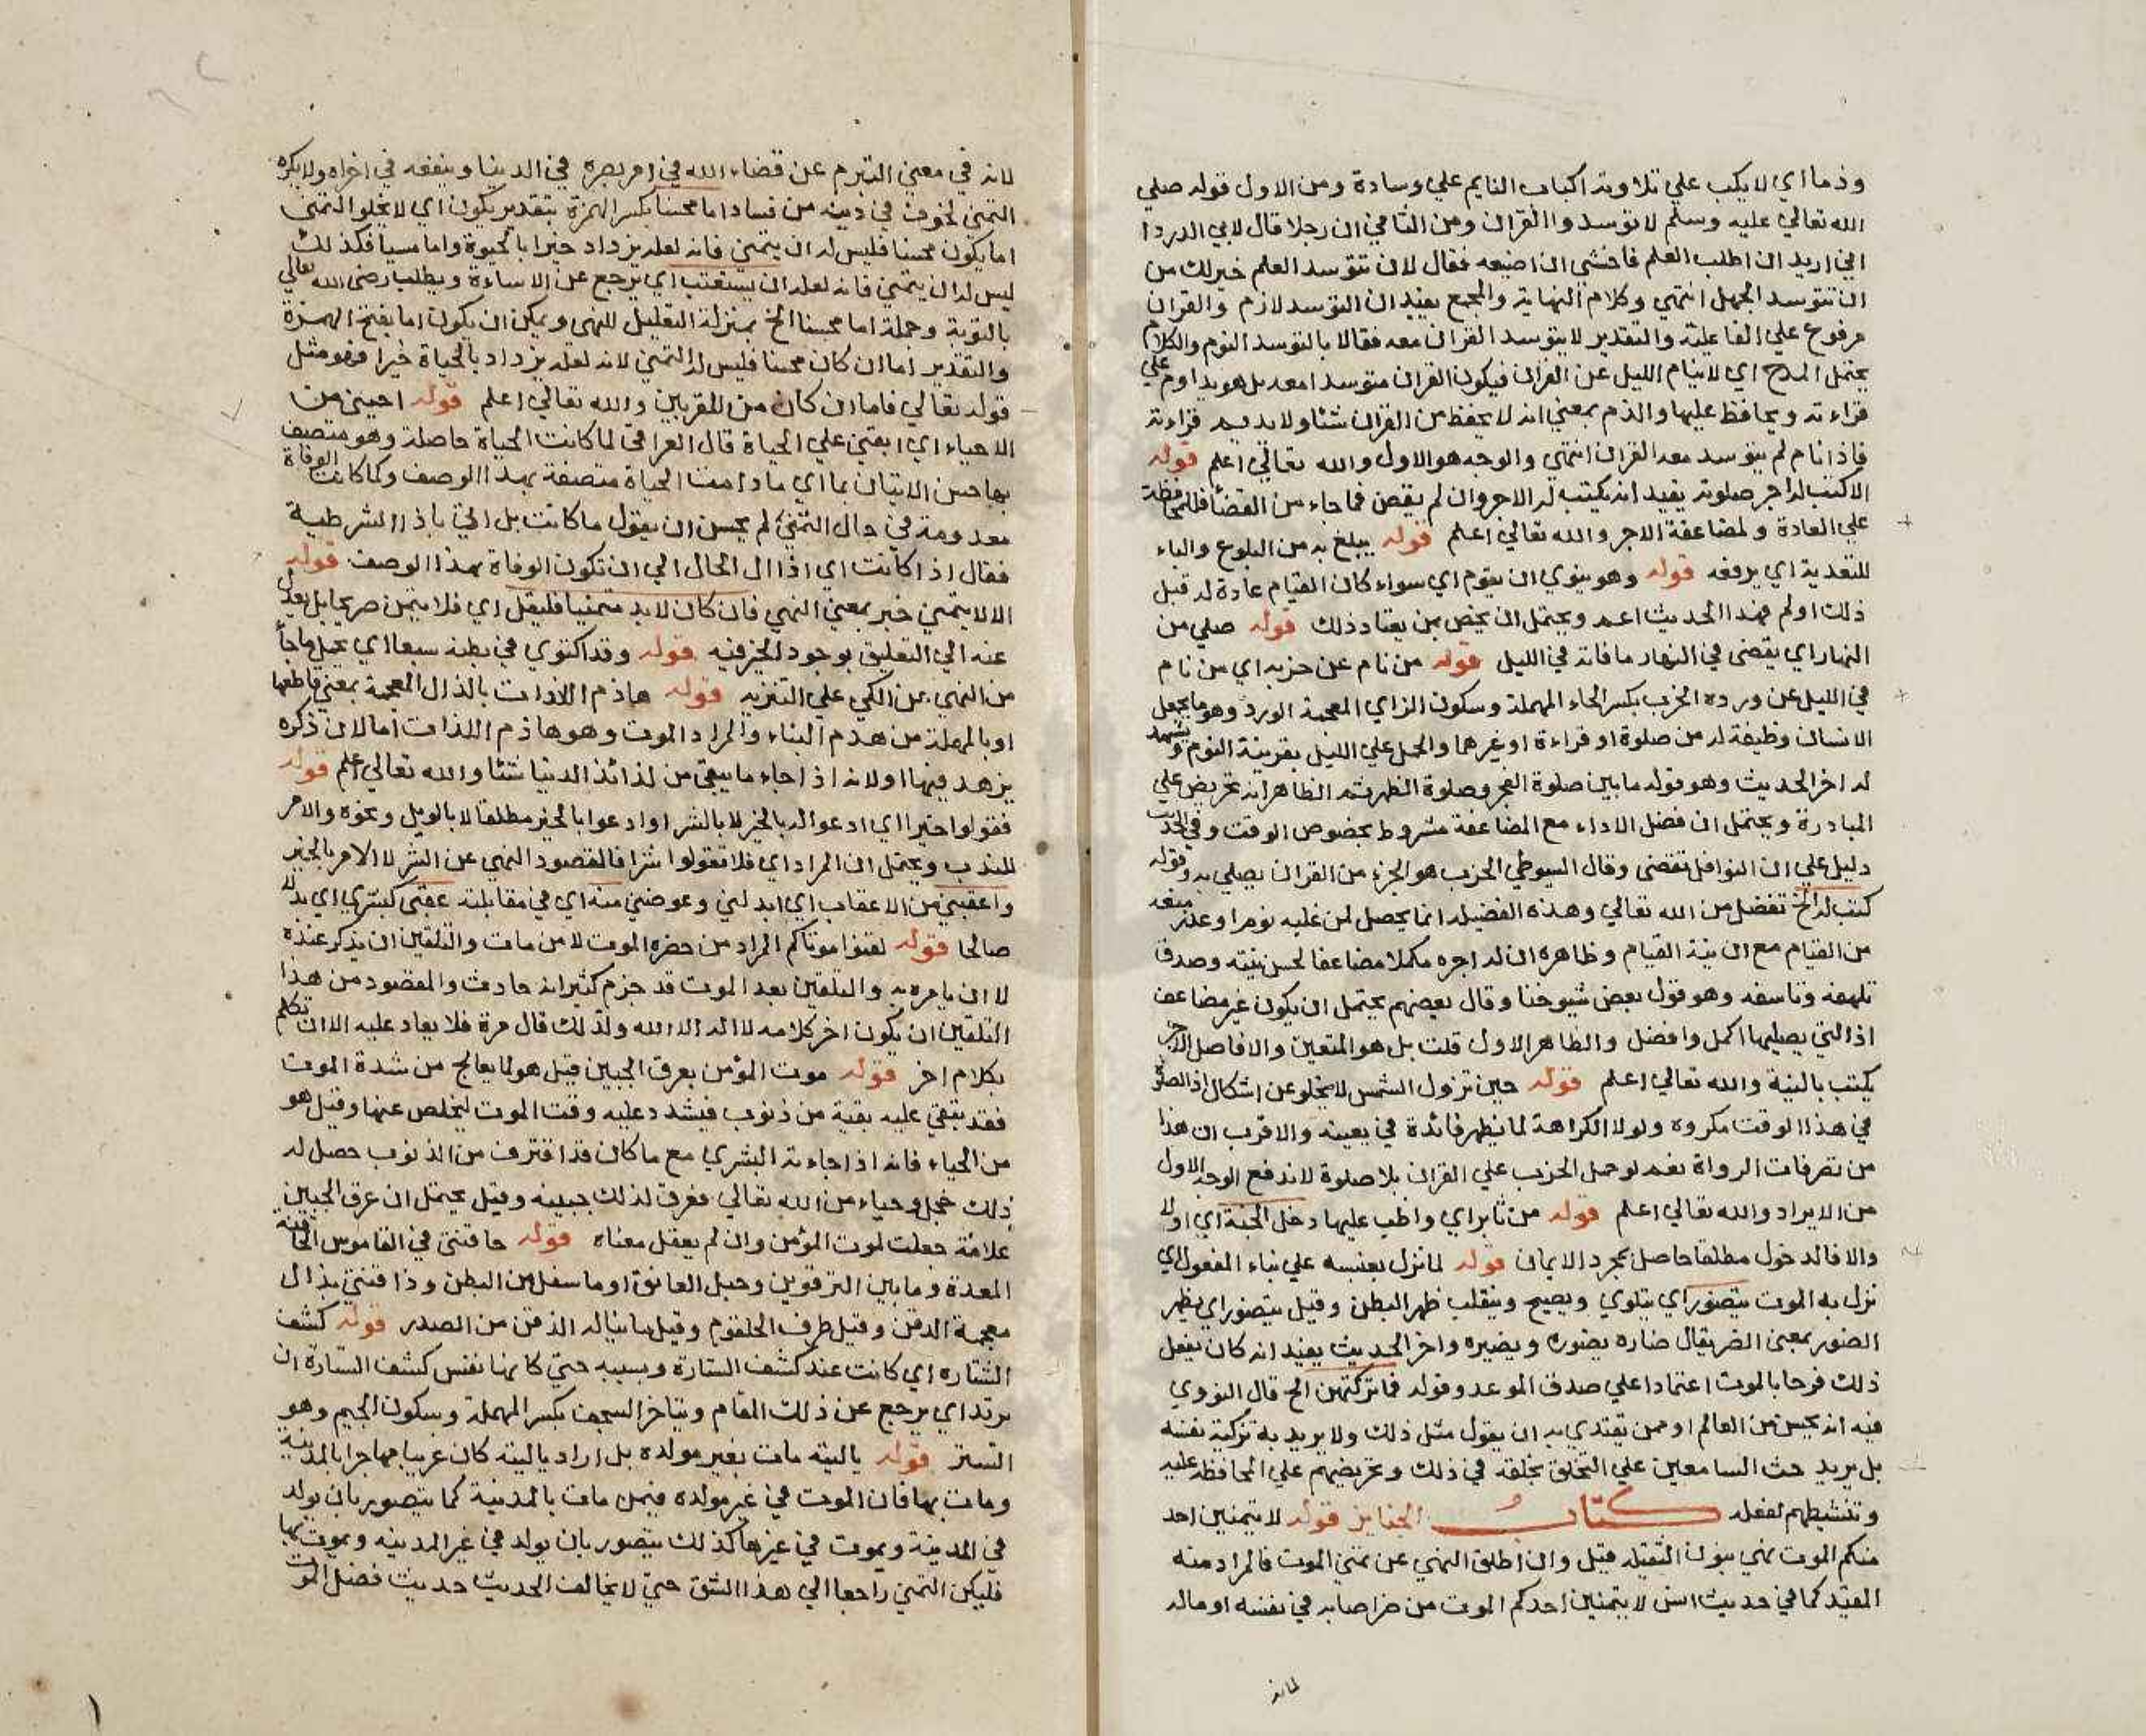 وذما اي لا يكب علي تلاوته اكباب النايم علي وسادة ومن الاول قوله صلي
الله تعالي عليه وسلم لا توسدوا القران ومن الثاني ان رجلا قال لابي الدردا
اني اريد ان اطلب العلم فاخشي ان اضيعه فقال لان تتوسد العلم خير لك من
ان تتوسد الجهل انتهي وكلام النهاية والمجمع يفيد ان التوسد لازم والقران
مرفوع علي الفاعلية والتقدير لا يتوسد القران معه فقالا بالتوسد النوم والكلام
يحتمل المدح اي لا ينام الليل عن القران فيكون القران متوسدا معه بل هو يداوم علي
قراءته ويحافظ عليها والذم بمعني انه لا يحفظ من القران شئا ولا يديم قراءته
فاذا نام لم يتوسد معه القران انتهي والوجه هو الاول والله تعالي اعلم قوله
الا كتب له اجر صلوته يفيد انه يكتب له الاجر وان لم يقض فما جاء من القضا فللمحافظة
علي العادة ولمضاعفة الاجر والله تعالي اعلم قوله يبلغ به من البلوغ والباء
للتعدية اي يرفعه قوله وهو ينوي ان يقوم اي سواء كان القيام عادة له قبل
ذلك اولم فهذا الحديث اعم ويحتمل ان يخص بمن يعتاد ذلك قوله صلي من
النهار اي يقضي في النهار ما فاته في الليل قوله من نام عن حزبه اي من نام
في الليل عن ورده الحزب بكسر الحاء المهملة وسكون الزاي المعجمة الورد وهو ما يجعل
الانسان وظيفة له من صلوة او قراءة او غيرهما والحمل علي الليل بقرينة النوم ويشهد
له اخر الحديث وهو قوله ما بين صلوة الفجر وصلوة الظهر ثم الظاهر انه تحريض علي
المبادرة ويحتمل ان فضل الاداء مع المضاعفة مشروط بخصوص الوقت وفي الحديث
دليل علي ان النوافل تقضي وقال السيوطي الحزب هو الجزء من القران يصلي به وقوله
كتب له الخ تفضل من الله تعالي وهذه الفضيلة انما يحصل لمن غلبه نوم او عذر منعه
من القيام مع ان نية القيام وظاهره ان له اجره مكملا مضاعفا لحسن نيته وصدق
تلهفه وتاسفه وهو قول بعض شيوخنا وقال بعضهم يحتمل ان يكون غير مضاعف
اذ التي يصليها اكمل وافضل والظاهر الاول قلت بل هو المتعين والا فاصل الاجر
يكتب بالنية والله تعالي اعلم قوله حين تزول الشمس لا يخلو عن اشكال اذ الصلوة
في هذا الوقت مكروه ولولا الكراهة لما يظهر فائدة في تعيينه والاقرب ان هذا
من تصرفات الرواة نعم لو حمل الحزب علي القران بلا صلوة لاندفع الوجه الاول
من الايراد والله تعالي اعلم قوله من ثابر اي واظب عليها دخل الجنة اي اولا
والا فالدخول مطلقا حاصل بمجرد الايمان قوله لما نزل بعنبسه علي بناء المفعول اي
نزل به الموت يتضور اي يتلوي ويصيح ويتقلب ظهر البطن وقيل يتضور اي يظهر
الضور بمعني الضر يقال ضاره يضوره ويضيره واخر الحديث يفيد انه كان يفعل
ذلك فرحا بالموت اعتمادا علي صدق الموعد وقوله فما تركتهن الخ قال النووي
فيه انه يحسن من العالم او ممن يقتدي به ان يقول مثل ذلك ولا يريد به تزكية نفسه
بل يريد حث السامعين علي التخلق بخلقه في ذلك وتحريضهم علي المحافظة عليه
وتنشيطهم لفعله كتاب الجنايز قوله لا يتمنين احد
منكم الموت نهي بنون الثقيلة قيل وان اطلق النهي عن تمني الموت فالمراد منه
المقيد كما في حديث انس لا يتمنين احدكم الموت من ضر اصابه في نفسه او ماله
لانه
لانه في معني التبرم عن قضاء الله في امر يضره في الدنيا وينفعه في اخراه ولا يكره
التمني لخوف في دينه من فساد اما محسنا بكسر الهمزة بتقدير يكون اي لا يخلو المتمني
اما يكون محسنا فليس له ان يتمني فانه لعله يزداد خيرا بالحيوة واما مسيا فكذلك
ليس له ان يتمني فانه لعله ان يستعتب اي يرجع عن الاساءة ويطلب رضي الله تعالي
بالتوبة وجملة اما محسنا الخ بمنزلة التعليل للنهي ويمكن ان يكون اما بفتح الهمزة
والتقدير اما ان كان محسنا فليس له التمني لانه لعله يزداد بالحياة خيرا فهو مثل
قوله تعالي فاما ان كان من المقربين والله تعالي اعلم قوله احيني من
الاحياء اي ابقني علي الحياة قال العراقي لما كانت الحياة حاصلة وهو متصف
بها حسن الاتيان بما اي ما دامت الحياة متصفة بهذا الوصف ولما كانت الوفاة
معدومة في حال التمني لم يحسن ان يقول ما كانت بل اتي باذا الشرطية
فقال اذا كانت اي اذا ال الحال الي ان تكون الوفاة بهذا الوصف قوله
الا لا يتمني خبر بمعني النهي فان كان لا بد متمنيا فليقل اي فلا يتمن صريحا بل يعدل
عنه الي التعليق بوجود الخير فيه قوله وقد اكتوي في بطنه سبعا اي يحمل ما جاء
من النهي عن الكي علي التنزيه قوله هاذم اللذات بالذال المعجمة بمعني قاطعها
او بالمهملة من هدم البناء والمراد الموت وهو هاذم اللذات اما لان ذكره
يزهد فيها او لانه اذا جاء ما يبقي من لذائذ الدنيا شئا والله تعالي اعلم قوله
فقولوا خيرا اي ادعوا له بالخير لا بالشر او ادعوا بالخير مطلقا لا بالويل ونحوه والامر
للندب ويحتمل ان المراد اي فلا تقولوا شرا فالمقصود النهي عن الشر لا الامر بالخير
واعقبني من الاعقاب اي ابدلني وعوضني منه اي في مقابلته عقبي كبشري اي بدلا
صالحا قوله لقنوا موتاكم المراد من حضره الموت لا من مات والتلقين ان يذكر عنده
لا ان يامره به والتلقين بعد الموت قد جزم كثير انه حادث والمقصود من هذا
التلقين ان يكون اخر كلامه لا اله الا الله ولذلك قال مرة فلا يعاد عليه الا ان تكلم
بكلام اخر قوله موت المؤمن بعرق الجبين قيل هو لما يعالج من شدة الموت
فقد تبقي عليه بقية من ذنوب فيشدد عليه وقت الموت ليخلص عنها وقيل هو
من الحياء فانه اذا جاءته البشري مع ما كان قد اقترف من الذنوب حصل له
ذلك خجل وحياء من الله تعالي فعرق لذلك جبينه وقيل يحتمل ان عرق الجبين
علامة جعلت لموت المؤمن وان لم يعقل معناه قوله حاقنتي في القاموس الحاقنة
المعدة وما بين الترقوتين وحبل العاتق او ما سفل من البطن وذاقنتي بذال
معجمة الذقن وقيل طرف الحلقوم وقيل ما يناله الذقن من الصدر قوله كشف
الستاره اي كانت عند كشف الستارة وبسببه حتي كانها نفس كشف الستارة ان
يرتد اي يرجع عن ذلك المقام ويتاخر السجف بكسر المهملة وسكون الجيم وهو
الستر قوله ياليته مات بغير مولده بل اراد ياليته كان غريبا مهاجرا بالمدينة
ومات بها فان الموت في غير مولده فيمن مات بالمدينة كما يتصور بان يولد
في المدينة ويموت في غيرها كذلك يتصور بان يولد في غير المدينه ويموت بها
فليكن التمني راجعا الي هذا الشق حتي لا يخالف الحديث حديث فضل الموت